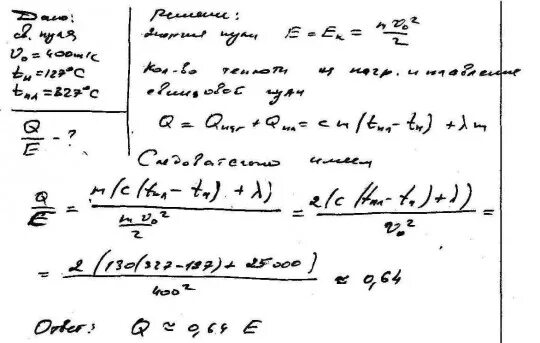 Дано:
св. пуля
v₀ = 400 м/с
tн = 127°C
tпл = 327°C
Q/E - ?
Решение:
энергия пули E = Eк = mv₀²/2
Кол-во теплоты на нагр. и плавление
свинцовой пули
Q = Qнаг + Qпл = cm(tпл - tн) + λm
Следовательно имеем
Q/E = m(c(tпл - tн) + λ)/(mv₀²/2) = 2(c(tпл - tн) + λ)/v₀² =
= 2(130(327-127) + 25000)/400² ≈ 0,64
Ответ: Q ≈ 0,64 E